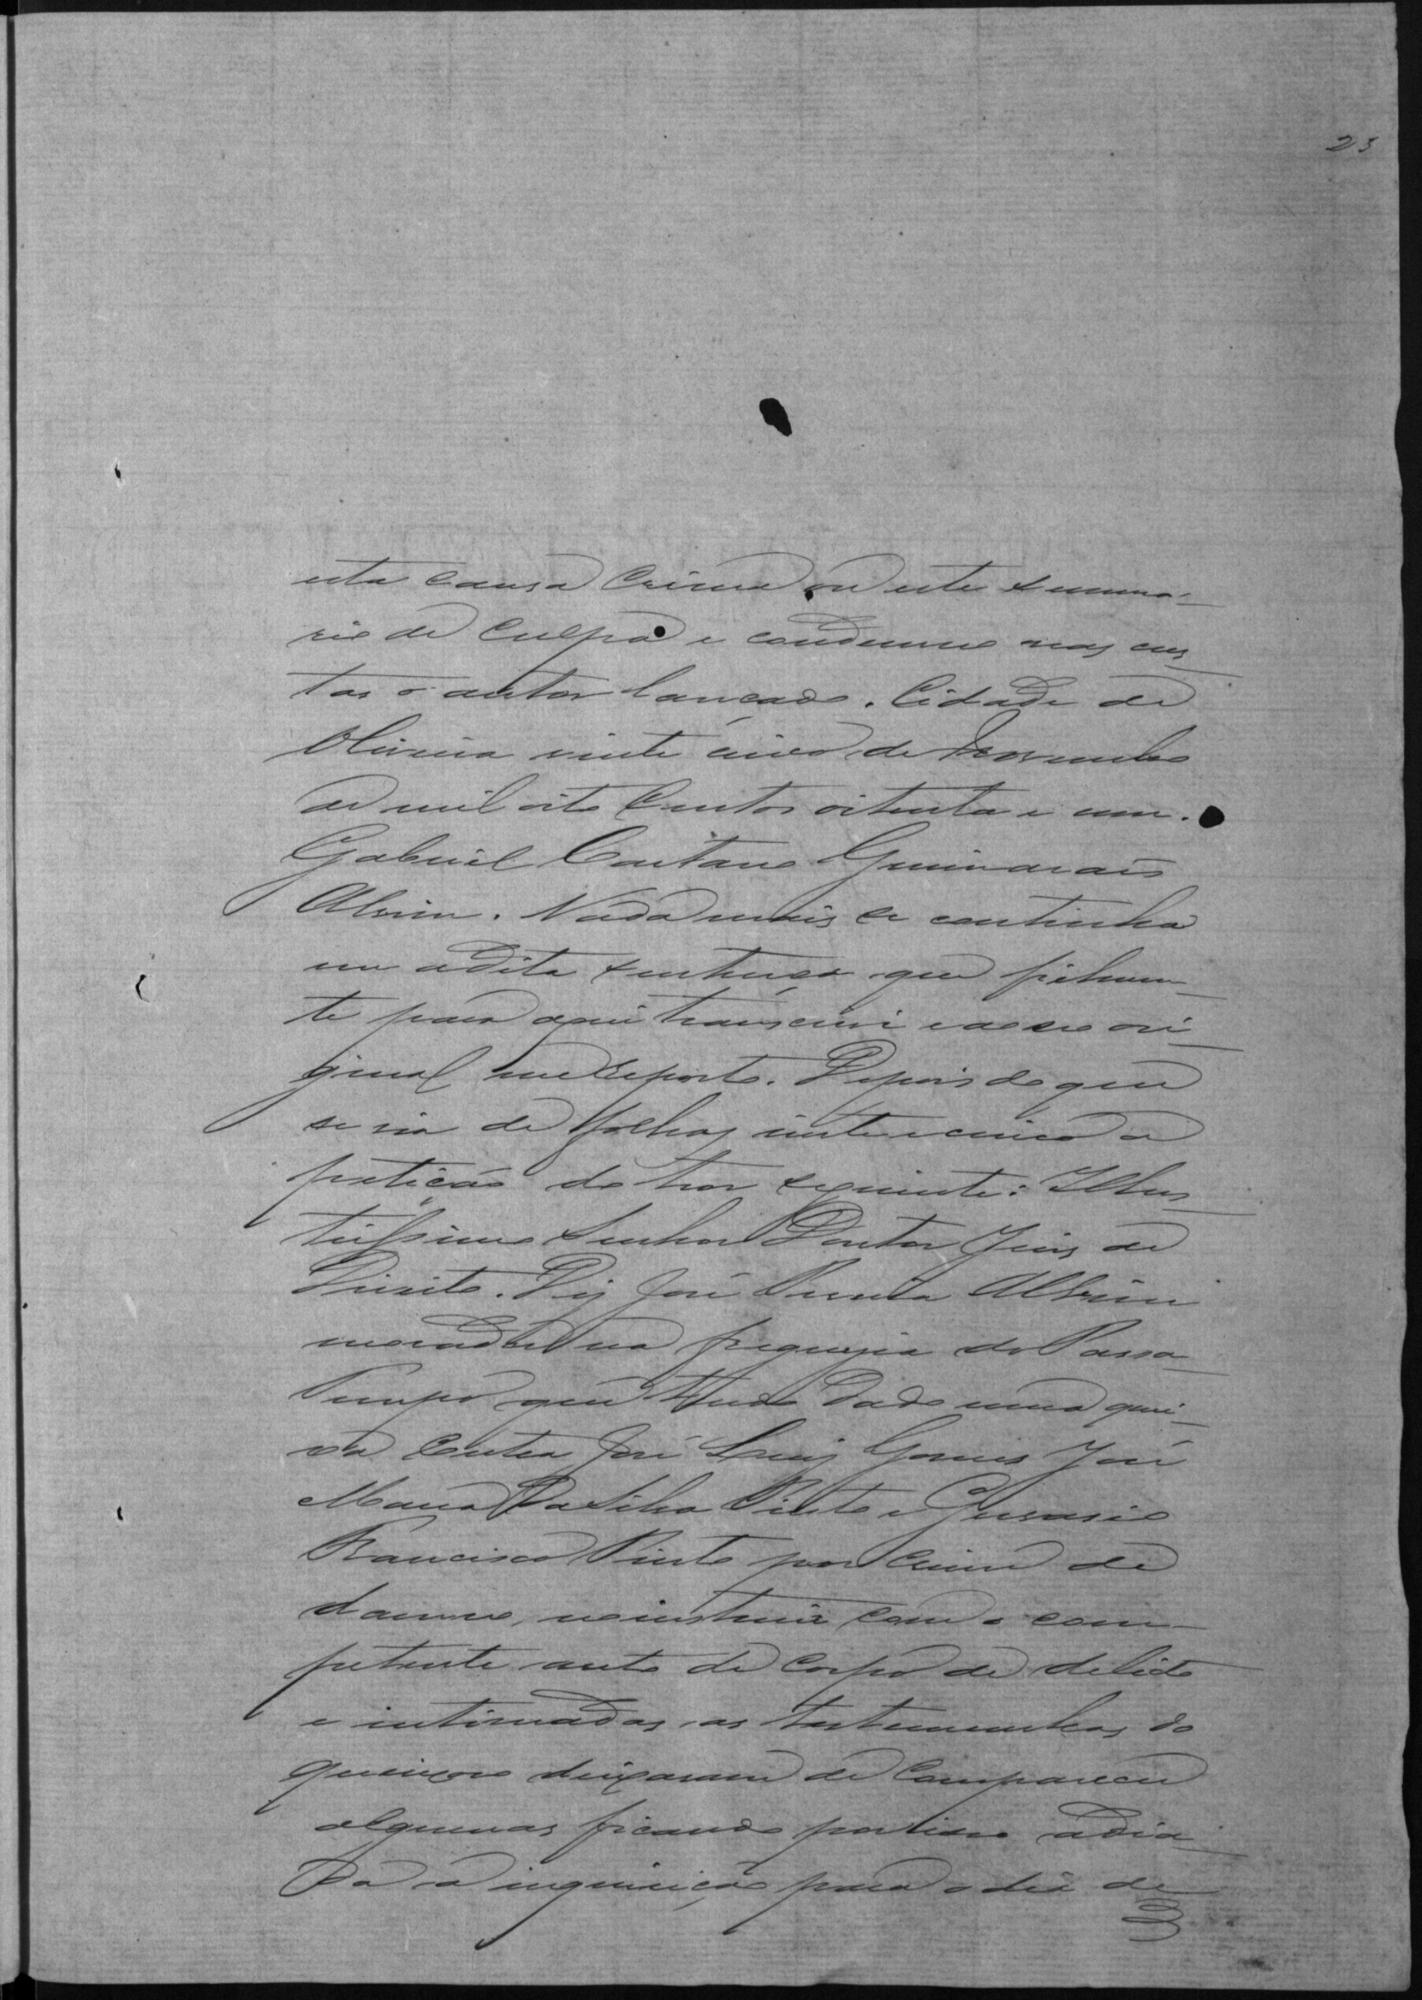 23
esta causa crime ou este summa-
rio de culpa e condemno nas cus-
tas o autor lançado. Cidade de
Oliveira vinte cinco de Novembro
de mil oito centos oitenta e um.
Gabriel Caetano Guimarais
Alvim. Nada mais se continha
em a dita sentença que fielmen-
te para aqui transcrevi e a esse ori-
ginal me reporto. Depois do que
se via de folhas vinte e cinco a
petição do thor seguinte: Illus-
trissimo Senhor Doutor Juis de
Direito. Diz José Pereira Alvim
morador na freguezia do Passa
Tempo que tendo dado uma quei-
xa contra José Luiz Gomes José
Maria da Silva Pinto e Gervasio
Francisco Pinto por crime de
damno, instruir com o com-
petente auto de corpo de delicto
e intimadas as testemunhas do
queixoso deixaram de comparecer
algumas ficando por isso adia-
da a inquirição para o dia de